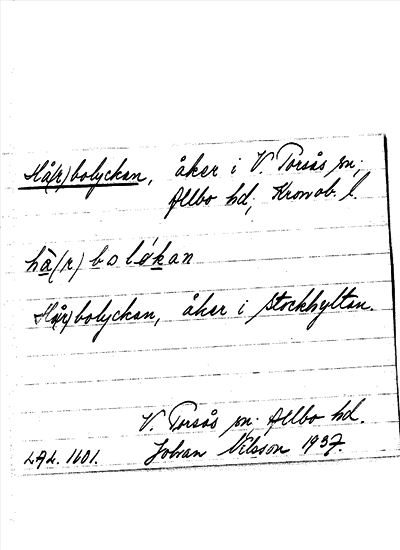 Hå(r)bolyckan, åker i V. Torsås sn;
Allbo hd, Kronob. l.
hà(r)bolókan
Hå(r)bolyckan, åker i Stockhyltan.
V. Torsås sn. Allbo hd.
LAL. 1601. Johan Nilsson 1937.